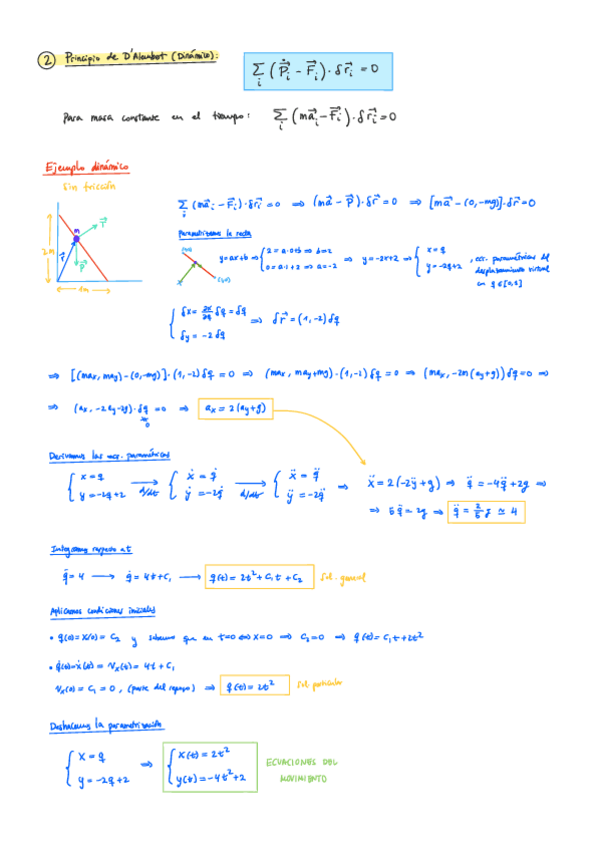 2 Principio de D'Alembert (Dinámico):
∑_i (Ṗ_i - F_i)·δr_i = 0
Para masa constante en el tiempo: ∑_i (ma_i - F_i)·δr_i = 0
Ejemplo dinámico
Sin fricción
∑_i (ma_i - F_i)·δr_i = 0 ⟹ (ma - P)·δr = 0 ⟹ [ma - (0,-mg)]·δr = 0
Parametrizamos la recta
2m
m
r
P
1m
y = ax+b ⟹ { 2 = a·0+b ⟹ b=2
0 = a·1+2 ⟹ a=-2
⟹ y = -2x+2 ⟹ { x = q
y = -2q+2
, ecc. paramétricas del
desplazamiento virtual
{ δx = ∂x/∂q δq = δq
δy = -2δq
⟹ δr = (1,-2)δq
⟹ [(ma_x, ma_y) - (0,-mg)]·(1,-2)δq = 0 ⟹ (ma_x, ma_y+mg)·(1,-2)δq = 0 ⟹ (ma_x, -2m(a_y+g))δq = 0 ⟹
⟹ (a_x, -2a_y-2g)·δq = 0 ⟹ a_x = 2(a_y+g)
≠0
Derivamos las ecc. paramétricas
{ x = q
y = -2q+2
d/dt
{ ẋ = q̇
ẏ = -2q̇
d/dt
{ ẍ = q̈
ÿ = -2q̈
⟹ ẍ = 2(-2ÿ+g) ⟹ q̈ = -4q̈+2g ⟹
⟹ 5q̈ = 2g ⟹ q̈ = 2/5 g ≃ 4
Integramos respecto a t
q̈ = 4 → q̇ = 4t+C₁ → q(t) = 2t²+C₁t+C₂ Sol. general
Aplicamos condiciones iniciales
• q(0) = x(0) = C₂ y sabemos que en t=0 ⟺ x=0 ⟹ C₂=0 ⟹ q(t) = C₁t+2t²
• q̇(0) = ẋ(t) = V_x(t) = 4t+C₁
V_x(0) = C₁ = 0, (parte del reposo) ⟹ q(t) = 2t² Sol. particular
Deshacemos la parametrización
{ x = q
y = -2q+2
⟹ { x(t) = 2t²
y(t) = -4t²+2
ECUACIONES DEL
MOVIMIENTO